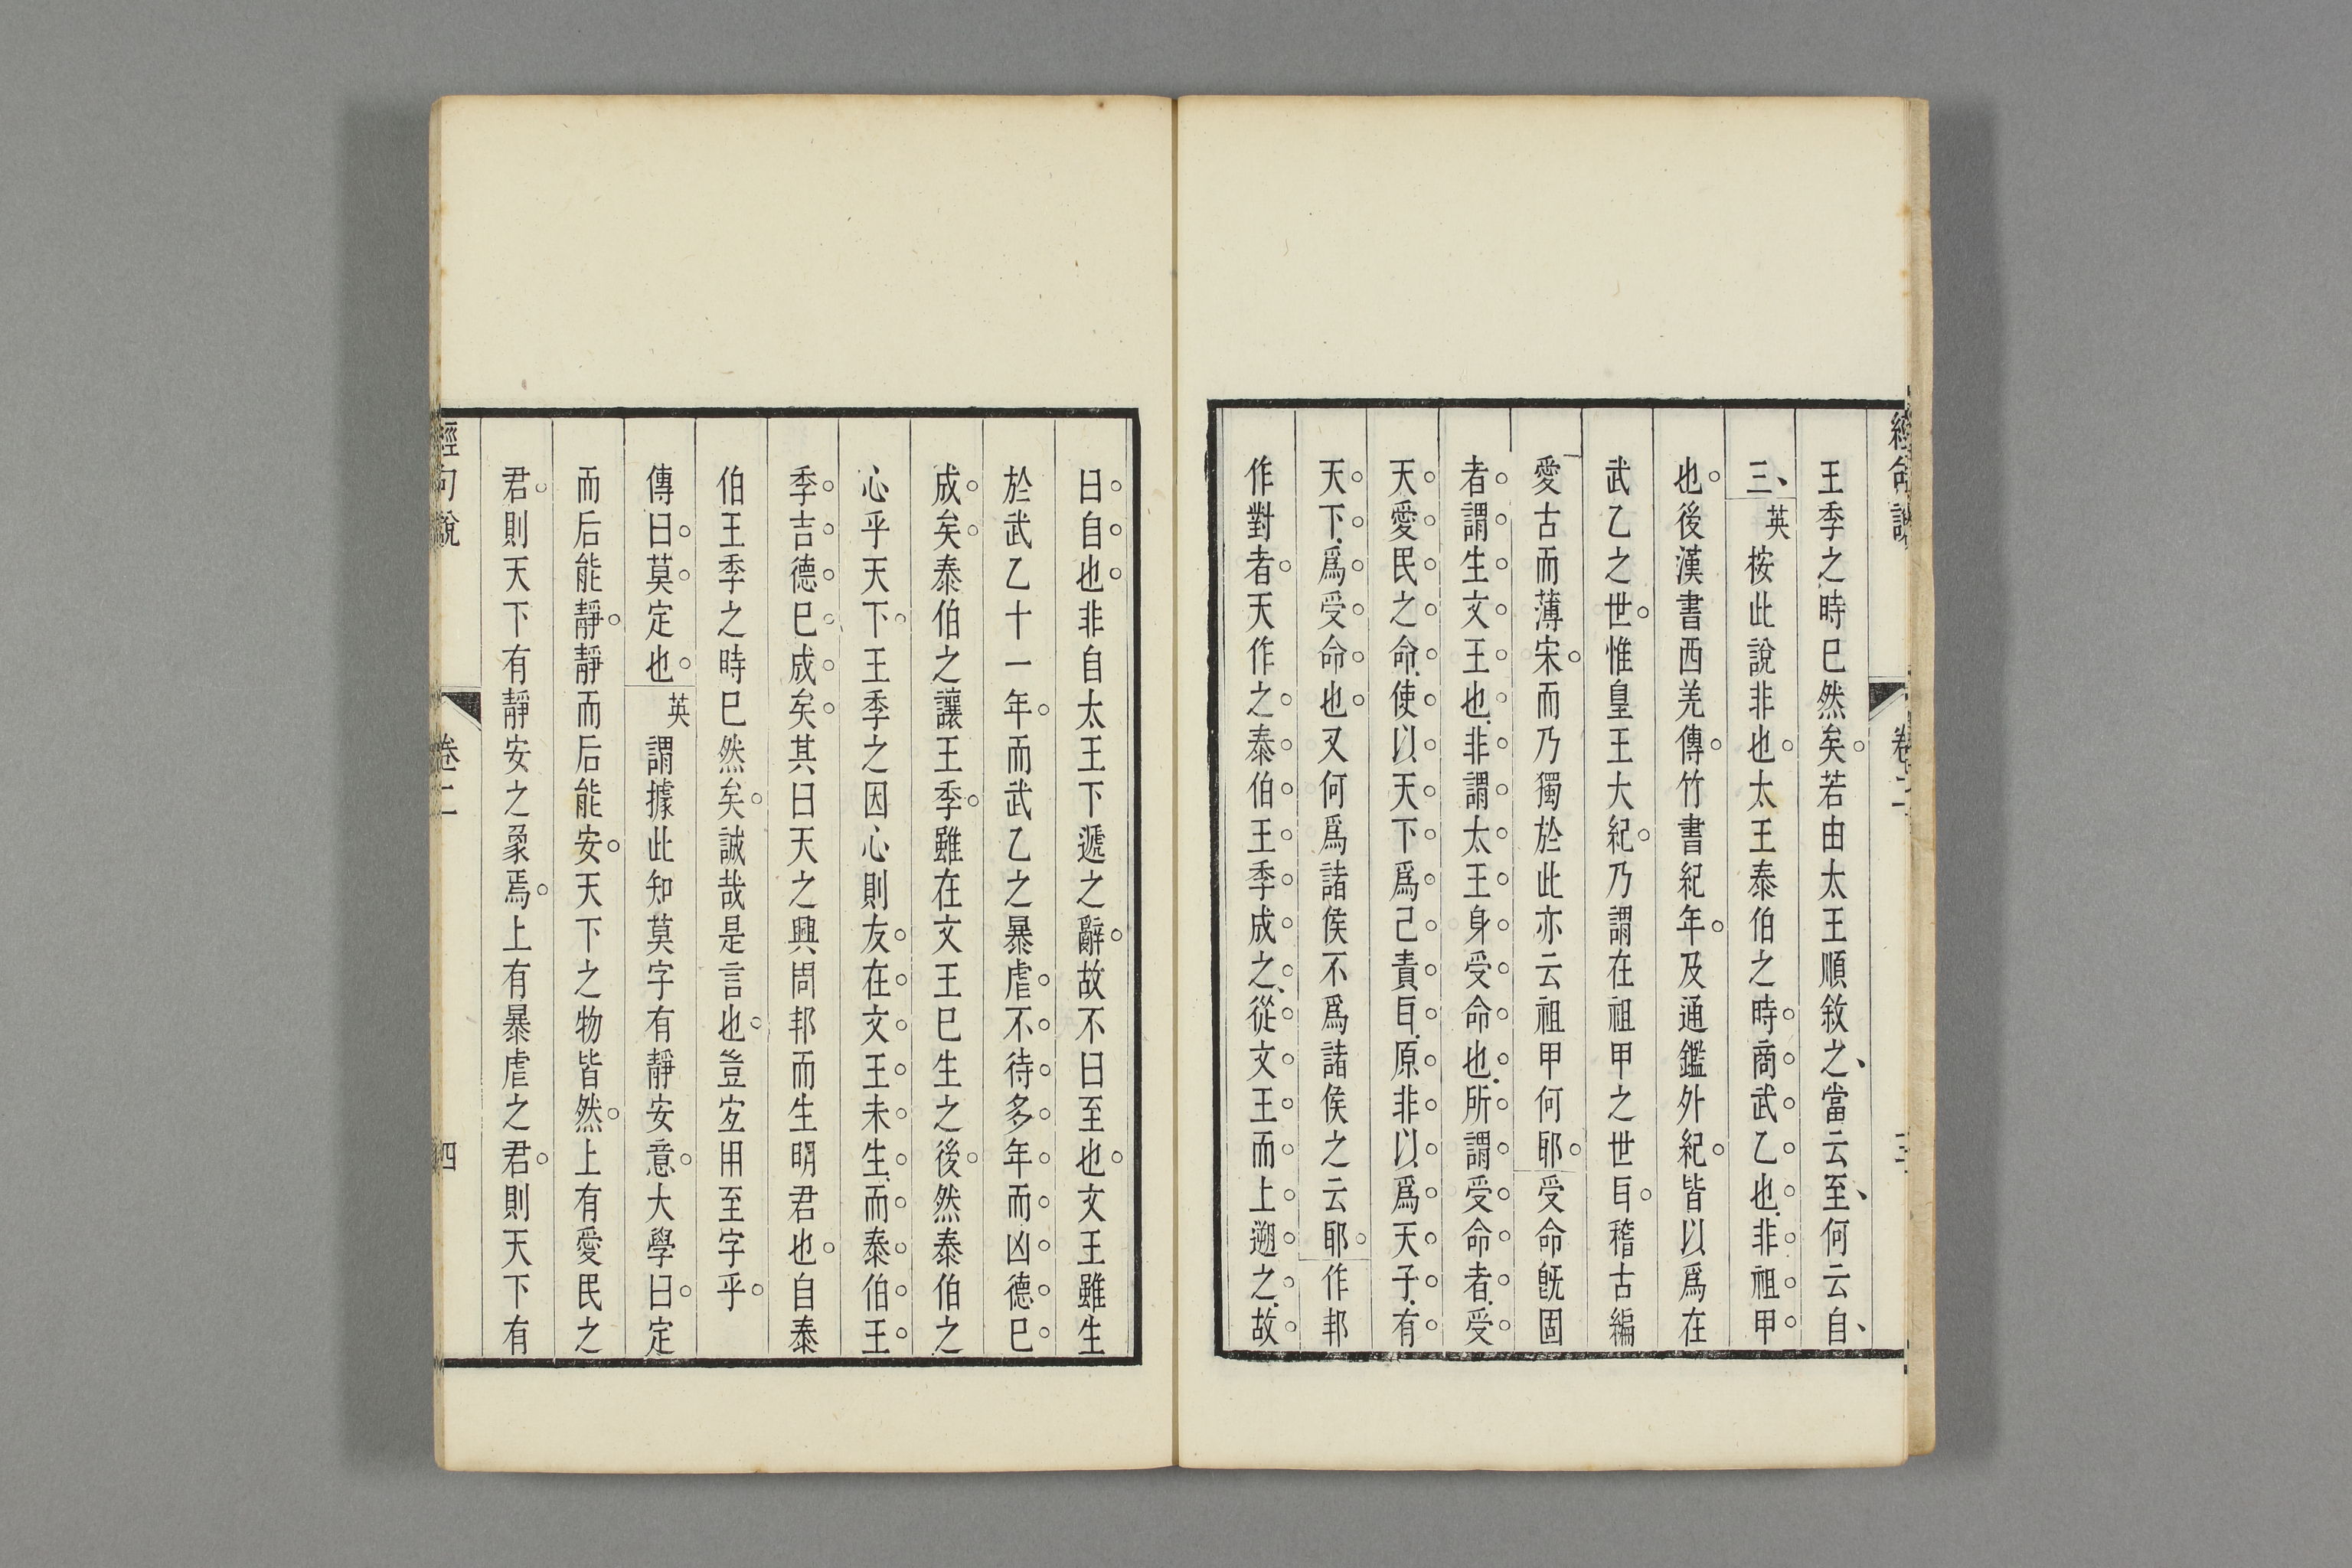 王季之時已然矣若由太王順敘之當云至何云自
三英按此說非也太王泰伯之時商武乙也非祖甲
也後漢書西羌傳竹書紀年及通鑑外紀皆以爲在
武乙之世惟皇王大紀乃謂在祖甲之世㠯稽古編
愛古而薄宋而乃獨於此亦云祖甲何耶受命旣固
者謂生文王也非謂太王身受命也所謂受命者受
天愛民之命使以天下爲己責㠯原非以爲天子有
天下爲受命也又何爲諸侯不爲諸侯之云耶作邦
作對者天作之泰伯王季成之從文王而上遡之故
經句說
卷二
三
曰自也非自太王下遞之辭故不曰至也文王雖生
於武乙十一年而武乙之暴虐不待多年而凶德已
成矣泰伯之讓王季雖在文王已生之後然泰伯之
心乎天下王季之因心則友在文王未生而泰伯王
季吉德已成矣其曰天之興周邦而生明君也自泰
伯王季之時已然矣誠哉是言也豈宐用至字乎
傳曰莫定也英謂據此知莫字有靜安意大學曰定
而后能靜靜而后能安天下之物皆然上有愛民之
君則天下有靜安之象焉上有暴虐之君則天下有
經句說
卷二
四